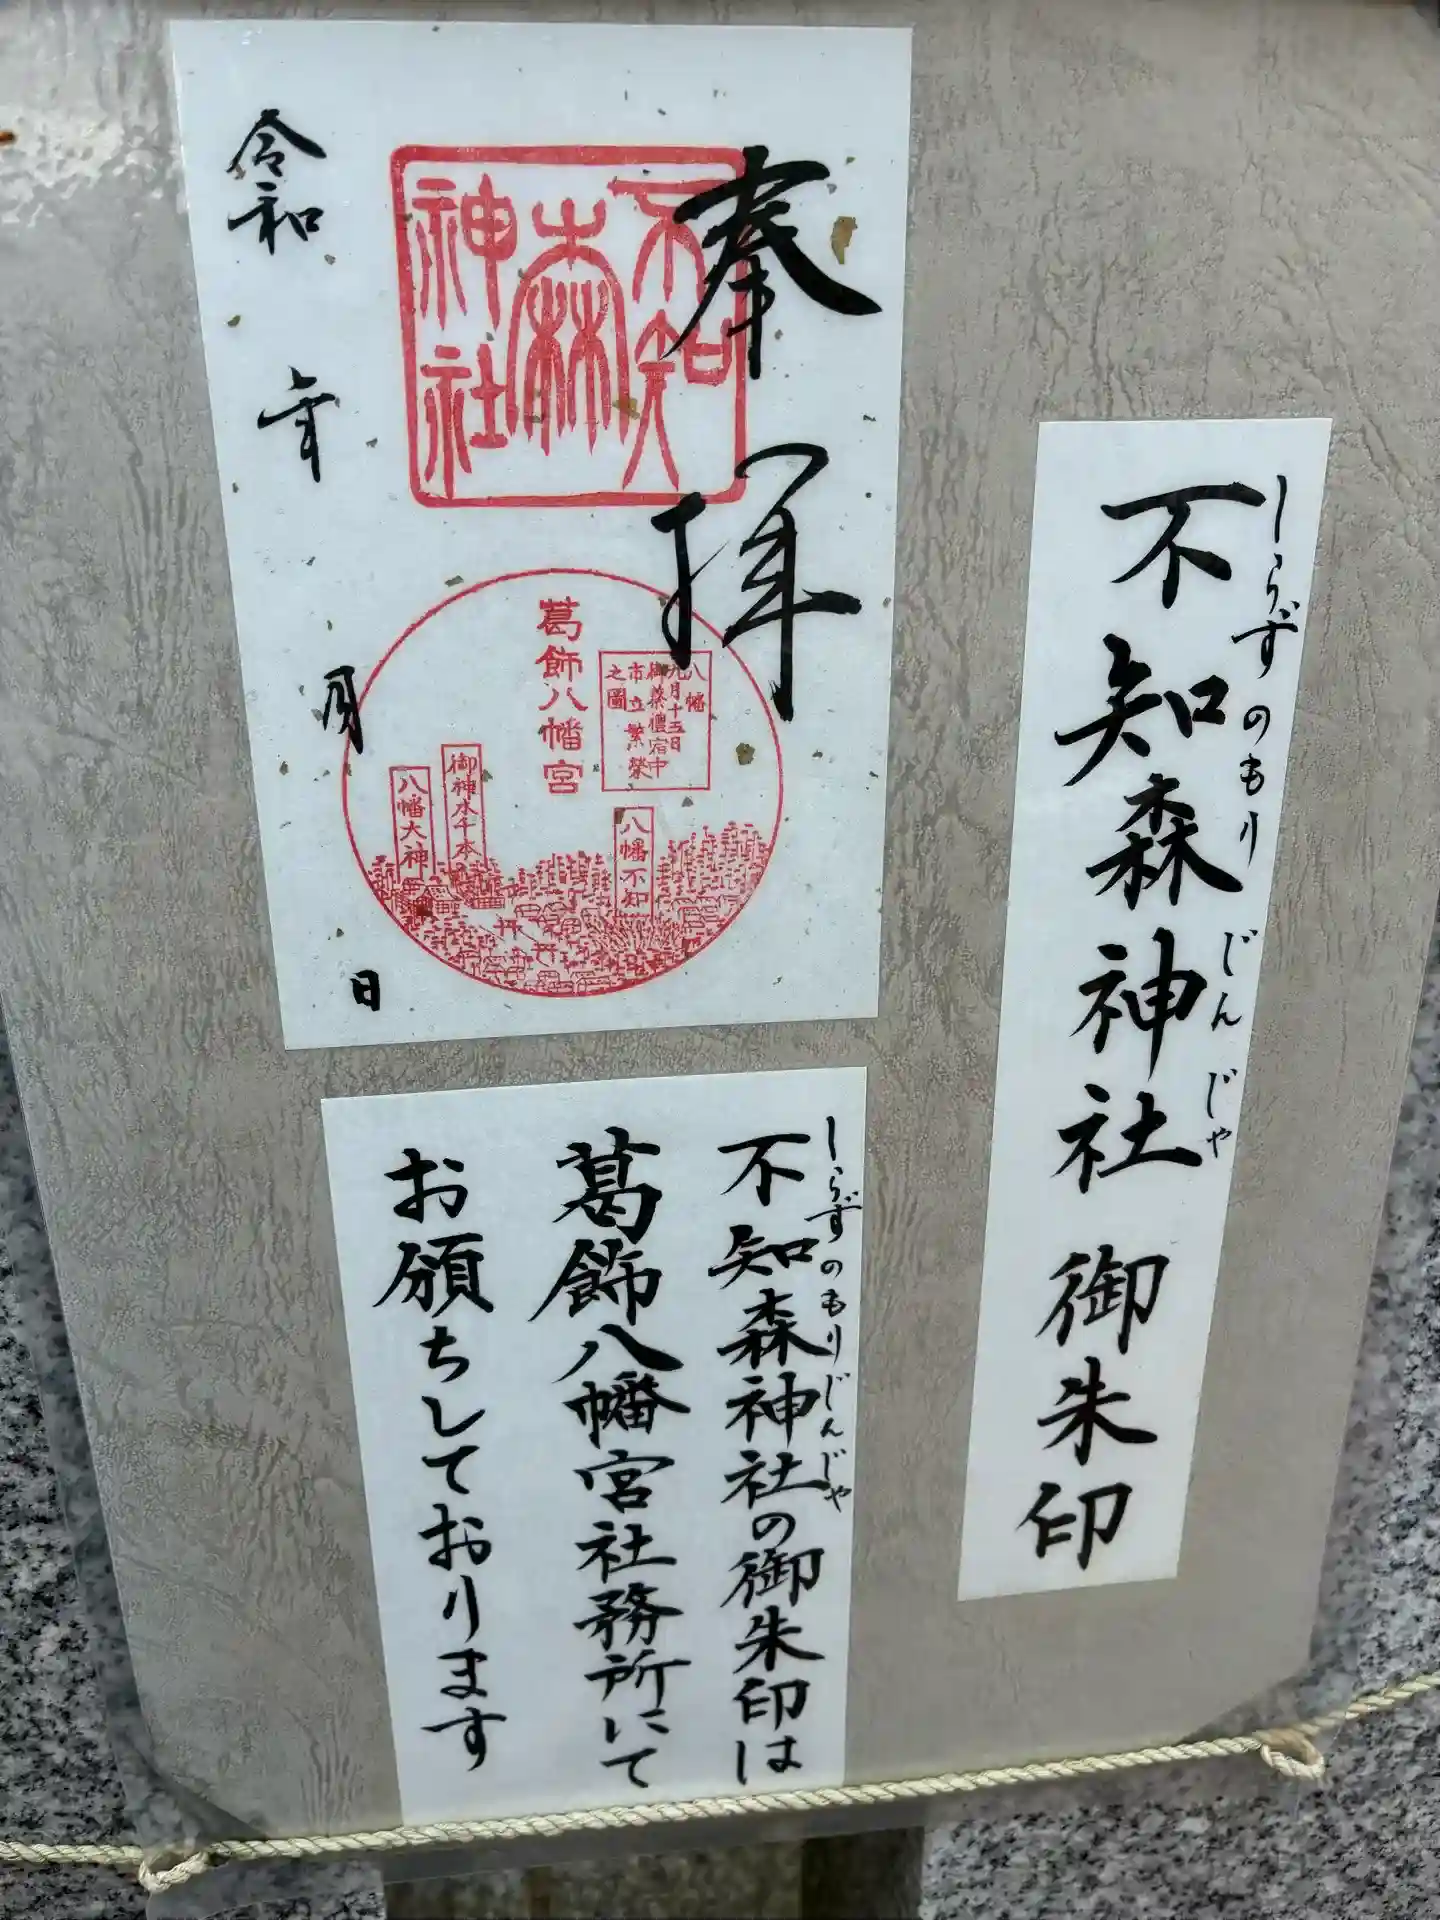 不知森神社 御朱印
しらずのもり じんじゃ
奉拝
不知
森
神社
令和 年 月 日
葛飾八幡宮
八幡
九月十五日
御祭禮宿中
市立繁榮
之圖
八幡不知
御神木千本
八幡大神
不知森神社の御朱印は
しらずのもりじんじゃ
葛飾八幡宮社務所にて
お頒ちしております